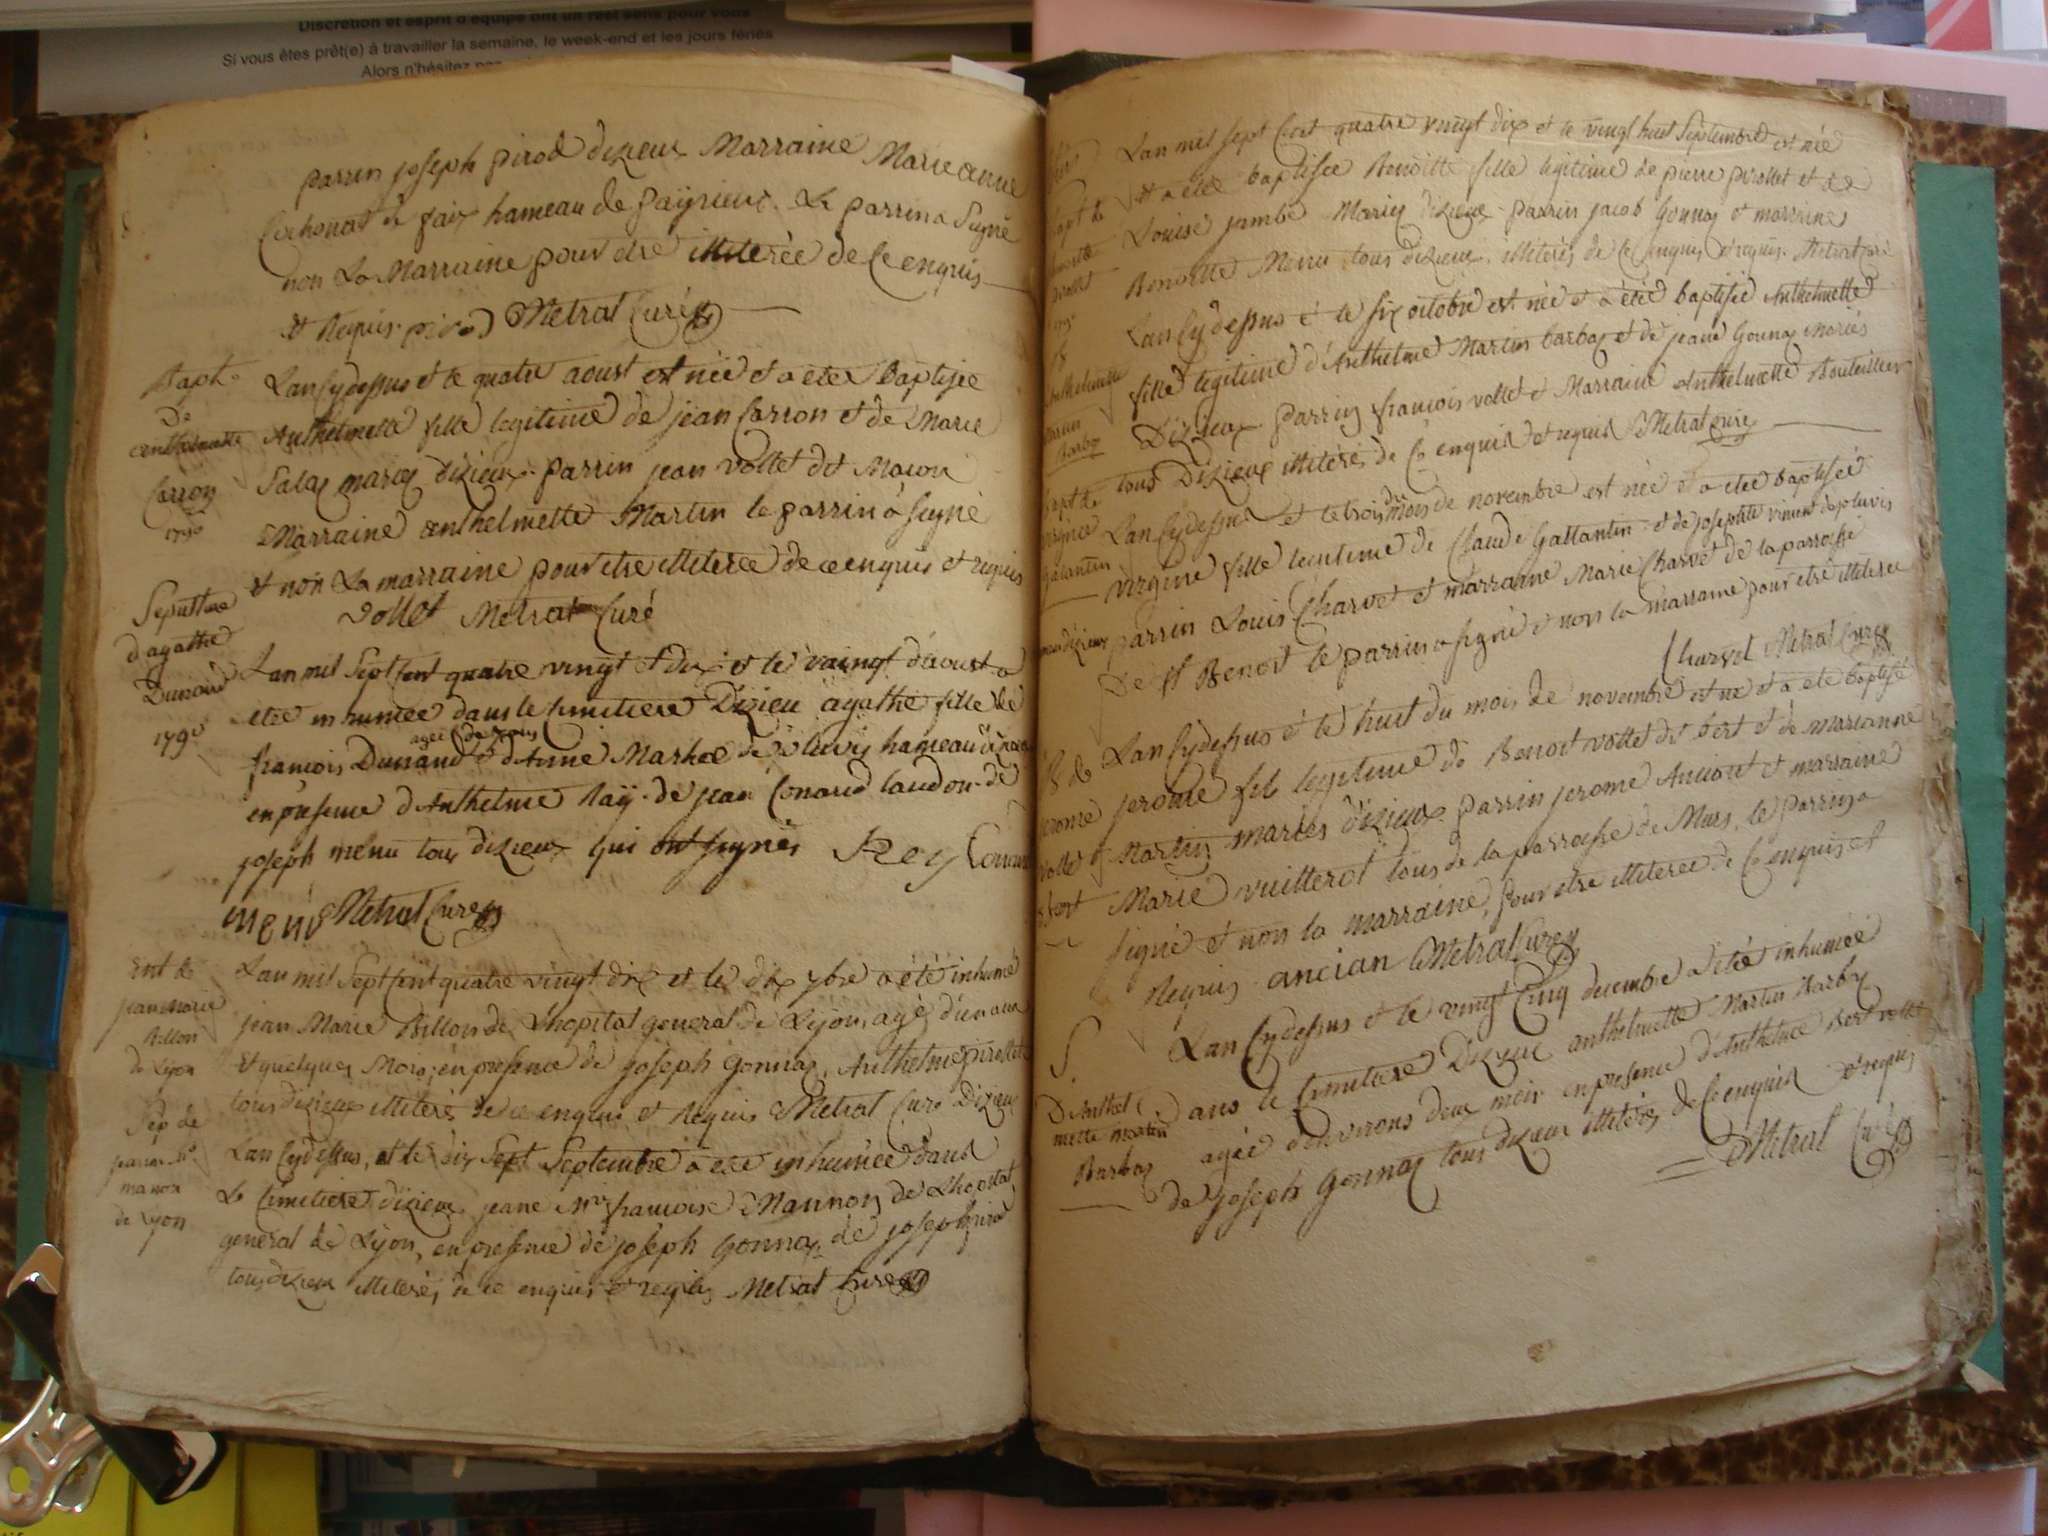 Discrétion et esprit d'équipe ont un réel sens pour vous
Si vous êtes prêt(e) à travailler la semaine, le week-end et les jours fériés
Alors n'hésitez pas
parrin joseph pirod dizieux Marraine Marie anne
de faix hameau de payrieux. Le parrin a Signé
non La Marraine pour etre illiterée de Ce enquis
et Requis. pirod Metrat Curé
Bapt.
De
anthelmette
Carron
1790
Lan Cydessus et le quatre aoust est née et a étée Baptisée
Anthelmette fille legitime de jean Carron et de Marie
Salaz mariez dizieux. parrin jean vollet dit Macon
Marraine anthelmette Martin le parrin à signé
et non La marraine pour etre illiterée de ce enquis et requis
Vollet Metrat Curé
Sepulture
d'agathe
Dunand
1790
Lan mil Sept Cent quatre vingt et dix et le vaingt d'aoust a
étée inhumée dans le Cimitiere Dizieu agathe fille de
agée de
françois Dunand et d'Anne Marhoe de hameau
en presence d'Anthelme Raÿ. de jean Conand laudon. de
joseph menu tous dizieux qui ont signés Rey Conand
menu Metrat Curé
Ent de
jean Marie
Billon
de Lyon
Lan mil Sept Cent quatre vingt dix et le dix 7bre a été inhumé
jean Marie Billon de Lhopital general de Lÿon, agé d'un an
et quelques Mois, en presence de joseph Gonnaz, Anthelme pirollet
tous dizieux illiterés de ce enquis et Requis Metrat Curé Dizieux
Sep de
jeanne
manon
de Lyon
Lan Cydessus, et le dix Sept Septembre a été inhumée dans
Le Cimetiere dizieux jeane Mie françoise Mannon de Lhopital
general de Lÿon, en presence de joseph Gonnaz de joseph
tous dizieux illiterés, de ce enquis et requis Metrat Curé
Lan mil sept Cent quatre vingt dix et le vingt huit Septembre est née
et a étée baptisée Benoitte fille legitime de pierre pirollet et de
Louise jambe Mariez dizieux. parrin jacob Gonnaz et marraine
Benoitte Menu tous dizieux, illiterés de Ce enquis et requis. Metrat curé
Lan Cydessus et le six octobre est née et a étée baptisée Anthelmette
fille legitime d'Anthelme Martin barbaz et de jeane Gonnaz Mariés
Anthelmette
Martin
Barbaz
Dizieux parrin françois vollet et Marraine Anthelmette Bouteiller
tous Dizieux illiterés de Ce enquis et requis Metrat Curé
Bapt de
virginie
Galantin
Lan Cydessus et le trois du mois de novembre est née et a étée baptisée
virginie fille legitime de Claude Gallantin et de josephte vincent
parrin Louis Charvet et marraine Marie Charvet de la parroisse
De St Benoit le parrin a signé et non la marraine pour etre illiteree
Charvet Metrat Curé
B de
jerome
vollet
bert
Lan Cydessus et le huit du mois de novembre est né et a été baptisé
jerome fils legitime de Benoit vollet dit bert et de marianne
Martin mariés dizieux. parrin jerome Anciant et marraine
Marie vuillerot tous de la parroisse de Murs, le parrin a
signé et non la marraine, pour etre illiterée de Ce enquis et
Requis. ancian Metrat Curé
S.
D'Anthel
mette martin
Barbaz
Lan Cydessus et le vingt Cinq decembre a étée inhumée
Dans le Cimitiere Dizieux anthelmette Martin Barbaz
agée d'environs deux mois en presence d'Anthelme Bert vollet
de joseph Gonnaz tous dizieux illiterés de Ce enquis et requis
Metrat Curé